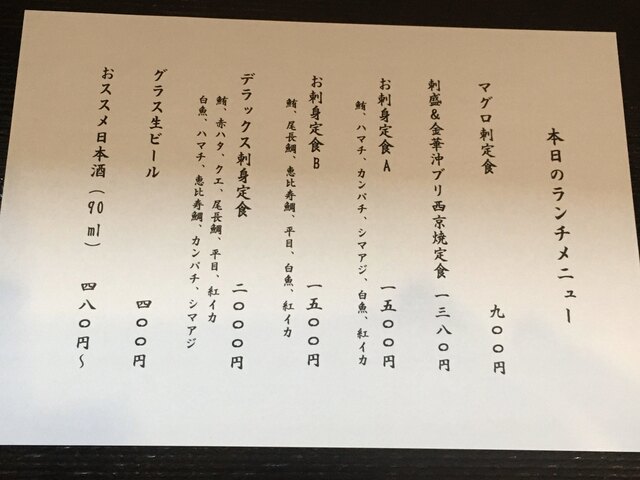 本日のランチメニュー
マグロ刺定食 九〇〇円
刺盛&金華沖ブリ西京焼定食 一三八〇円
お刺身定食A 一五〇〇円
鮪、ハマチ、カンパチ、シマアジ、白魚、紅イカ
お刺身定食B 一五〇〇円
鮪、尾長鯛、恵比寿鯛、平目、白魚、紅イカ
デラックス刺身定食 二〇〇〇円
鮪、赤ハタ、クエ、尾長鯛、平目、紅イカ
白魚、ハマチ、恵比寿鯛、カンパチ、シマアジ
グラス生ビール 四〇〇円
おススメ日本酒(90ml) 四八〇円~